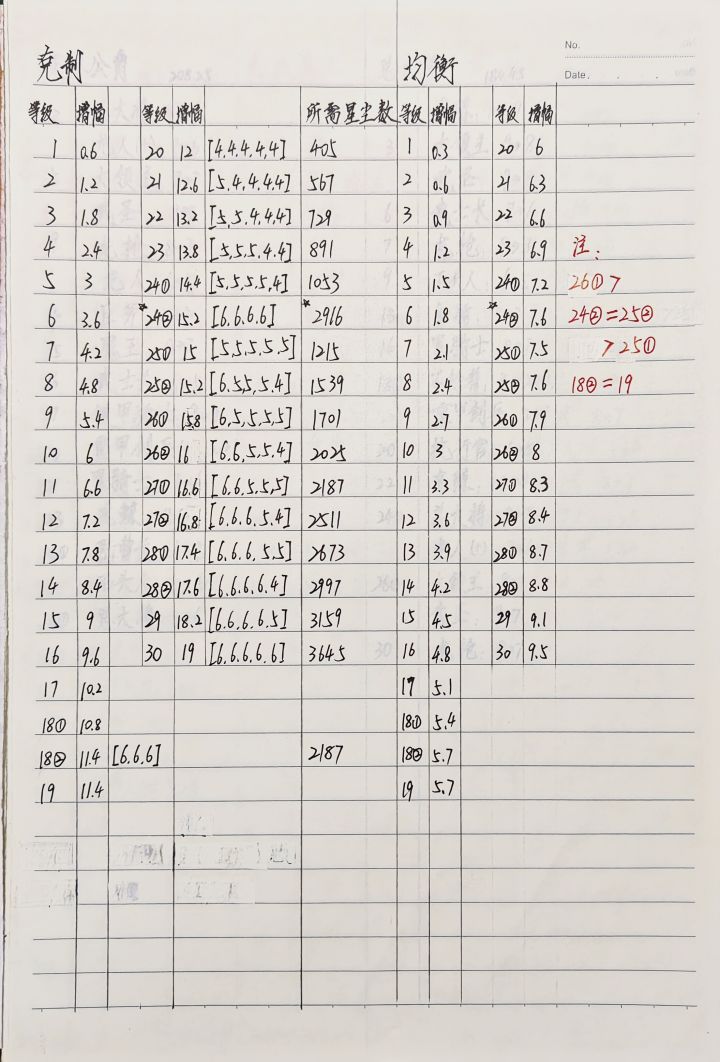 No.
克制 均衡
Date.
等级 增幅 等级 增幅 所需星尘数 等级 增幅 等级 增幅
1 0.6 20 12 [4.4.4.4.4] 405 1 0.3 20 6
2 1.2 21 12.6 [5.4.4.4.4] 567 2 0.6 21 6.3
3 1.8 22 13.2 [5.5.4.4.4] 729 3 0.9 22 6.6
4 2.4 23 13.8 [5.5.5.4.4] 891 4 1.2 23 6.9 注:
5 3 24① 14.4 [5.5.5.5.4] 1053 5 1.5 24① 7.2 26①>
6 3.6 *24② 15.2 [6.6.6.6] *2916 6 1.8 *24② 7.6 24②=25②
7 4.2 25① 15 [5.5.5.5.5] 1215 7 2.1 25① 7.5 >25①
8 4.8 25② 15.2 [6.5.5.5.4] 1539 8 2.4 25② 7.6 18②=19
9 5.4 26① 15.8 [6.5.5.5.5] 1701 9 2.7 26① 7.9
10 6 26② 16 [6.6.5.5.4] 2025 10 3 26② 8
11 6.6 27① 16.6 [6.6.5.5.5] 2187 11 3.3 27① 8.3
12 7.2 27② 16.8 [6.6.6.5.4] 2511 12 3.6 27② 8.4
13 7.8 28① 17.4 [6.6.6.5.5] 2673 13 3.9 28① 8.7
14 8.4 28② 17.6 [6.6.6.6.4] 2997 14 4.2 28② 8.8
15 9 29 18.2 [6.6.6.6.5] 3159 15 4.5 29 9.1
16 9.6 30 19 [6.6.6.6.6] 3645 16 4.8 30 9.5
17 10.2 17 5.1
18① 10.8 18① 5.4
18② 11.4 [6.6.6] 2187 18② 5.7
19 11.4 19 5.7